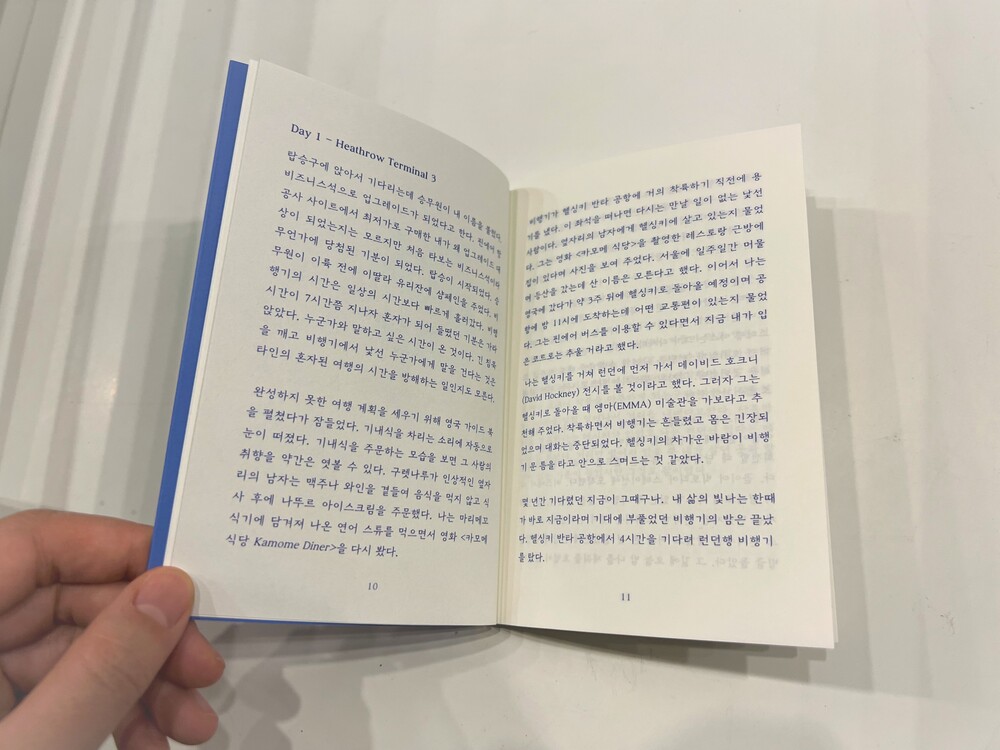 Day 1 – Heathrow Terminal 3
탑승구에 앉아서 기다리는데 승무원이 내 이름을 불렀다.
비즈니스석으로 업그레이드가 되었다고 한다. 핀에어 항
공사 사이트에서 최저가로 구매한 내가 왜 업그레이드 대
상이 되었는지는 모르지만 처음 타보는 비즈니스석이라
무언가에 당첨된 기분이 되었다. 탑승이 시작되었다. 승
무원이 이륙 전에 이딸라 유리잔에 샴페인을 주었다. 비
행기의 시간은 일상의 시간보다 빠르게 흘러갔다. 비행
시간이 7시간쯤 지나자 혼자가 되어 들떴던 기분은 가라
앉았다. 누군가와 말하고 싶은 시간이 온 것이다. 긴 침묵
을 깨고 비행기에서 낯선 누군가에게 말을 건다는 것은
타인의 혼자된 여행의 시간을 방해하는 일인지도 모른다.
완성하지 못한 여행 계획을 세우기 위해 영국 가이드 북
을 펼쳤다가 잠들었다. 기내식을 차리는 소리에 자동으로
눈이 떠졌다. 기내식을 주문하는 모습을 보면 그 사람의
취향을 약간은 엿볼 수 있다. 구렛나루가 인상적인 옆자
리의 남자는 맥주나 와인을 곁들여 음식을 먹지 않고 식
사 후에 나뚜르 아이스크림을 주문했다. 나는 마리메꼬
식기에 담겨져 나온 연어 스튜를 먹으면서 영화 <카모메
식당 Kamome Diner>을 다시 봤다.
10
비행기가 헬싱키 반타 공항에 거의 착륙하기 직전에 용
기를 냈다. 이 좌석을 떠나면 다시는 만날 일이 없는 낯선
사람이다. 옆자리의 남자에게 헬싱키에 살고 있는지 물었
다. 그는 영화 <카모메 식당>을 촬영한 레스토랑 근방에
집이 있다며 사진을 보여 주었다. 서울에 일주일간 머물
며 등산을 갔는데 산 이름은 모른다고 했다. 이어서 나는
영국에 갔다가 약 3주 뒤에 헬싱키로 돌아올 예정이며 공
항에 밤 11시에 도착하는데 어떤 교통편이 있는지 물었
다. 그는 핀에어 버스를 이용할 수 있다면서 지금 내가 입
은 코트로는 추울 거라고 했다.
나는 헬싱키를 거쳐 런던에 먼저 가서 데이비드 호크니
(David Hockney) 전시를 볼 것이라고 했다. 그러자 그는
헬싱키로 돌아올 때 엠마(EMMA) 미술관을 가보라고 추
천해 주었다. 착륙하면서 비행기는 흔들렸고 몸은 긴장되
었으며 대화는 중단되었다. 헬싱키의 차가운 바람이 비행
기 문 틈을 타고 안으로 스며드는 것 같았다.
몇 년간 기다렸던 지금이 그때구나. 내 삶의 빛나는 한때
가 바로 지금이라며 기대에 부풀었던 비행기의 밤은 끝났
다. 헬싱키 반타 공항에서 4시간을 기다려 런던행 비행기
를 탔다.
11